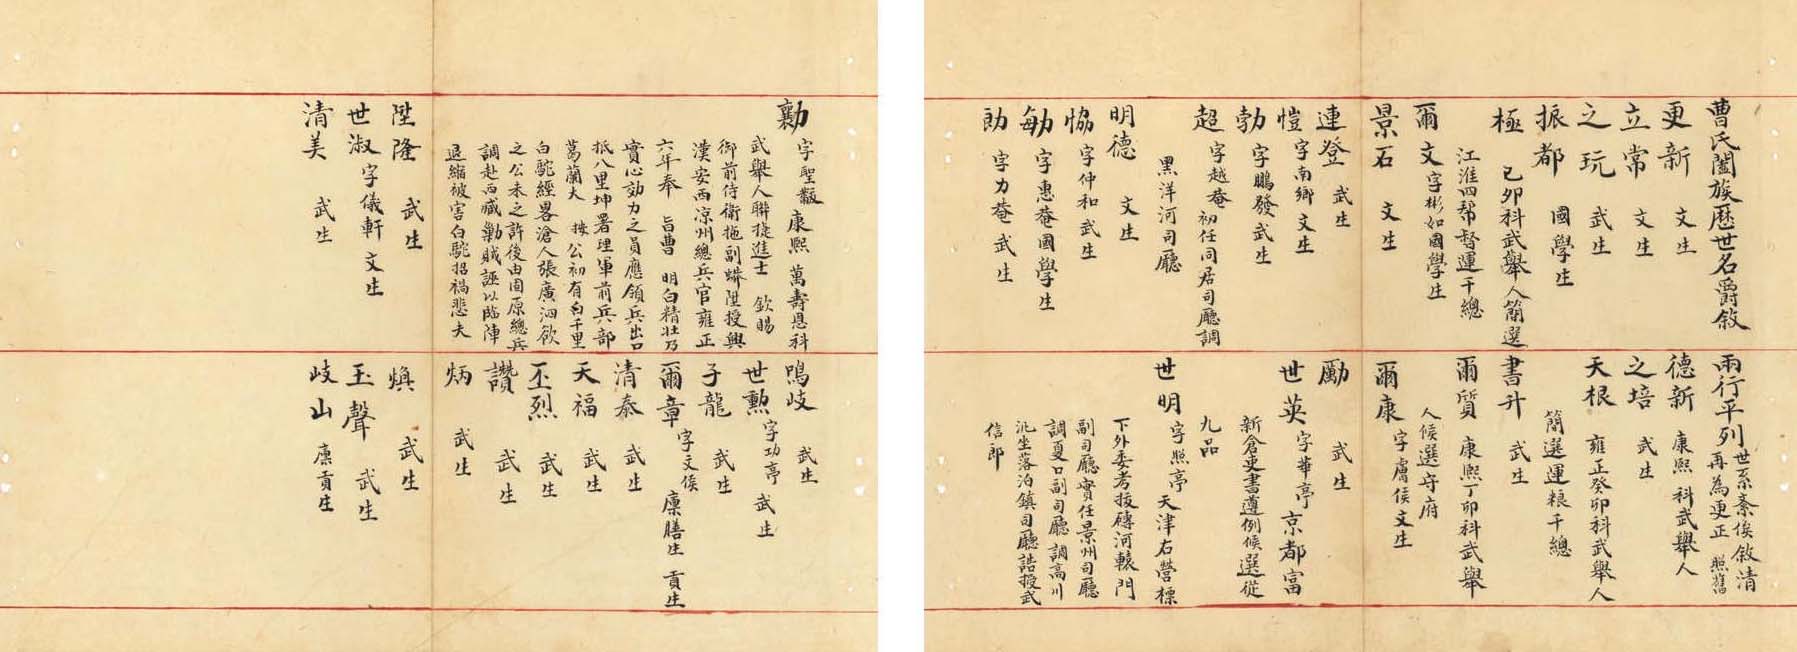 曹氏闔族歷世名爵敘
更新 文生
立常 文生
之玩 武生
振都 國學生
極 己卯科武舉人簡選
江淮四幫督運千總
爾文 字彬如國學生
景石 文生
連登 武生
愷 字南鄉 文生
勃 字鵬發武生
超 字越菴 初任同居司廳調
黑洋河司廳
明德 文生
恊 字仲和武生
勄 字惠菴國學生
助 字力菴 武生
兩行平列 世系紊俟敘清
再為更正 照舊
德新 康熙 科武舉人
之培 武生
天根 雍正癸卯科武舉人
簡選運粮千總
書升 武生
爾質 康熙丁卯科武舉
人候選守府
爾康 字膚侯文生
勵 武生
世英 字華亭 京都富
新倉吏書遵例候選從
九品
世明 字照亭 天津右營標
下外委考拔磚河轅門
副司廳實任景州司廳
調夏口副司廳 調高川
汛坐落泊鎮司廳誥授武
信郎
勷 字聖 康熙 萬壽恩科
武舉人聯捷進士 欽賜
御前侍衛拖副蟒陞授興
漢安西涼州總兵官雍正
六年奉 旨曹 明白精壯乃
實心効力之員應領兵出口
抵八里坤署理軍前兵部
葛蘭大 按公初有白千里
白駝經畧滄人張廣泗欲
之公未之許後由固原總兵
調赴西藏勦賊誣以臨陣
退縮被害白駝招禍悲夫
陞隆 武生
世淑 字儀軒 文生
清美 武生
鳴岐 武生
世勲 字功亭 武生
子龍 武生
爾章 字文侯 廩膳生 貢生
清泰 武生
天福 武生
丕烈 武生
讚 武生
炳 武生
煥 武生
玉聲 武生
岐山 廩貢生